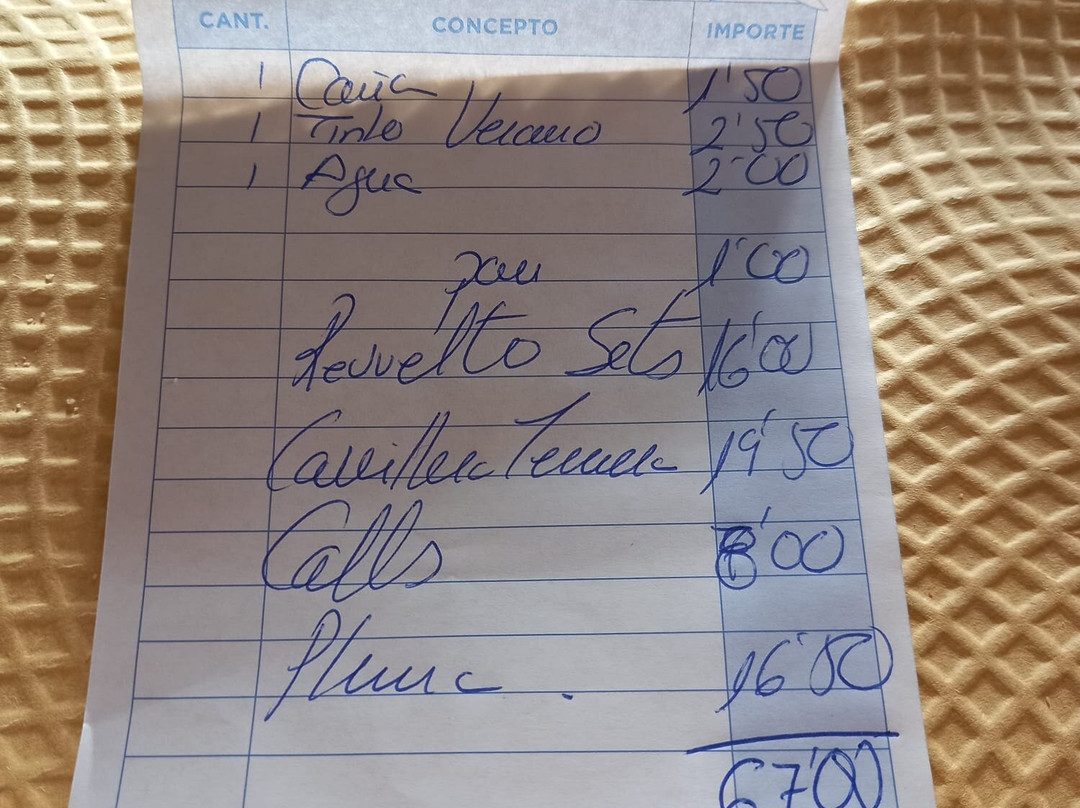 CANT. CONCEPTO IMPORTE
1 Caña 1'50
1 Tinto Verano 2'50
1 Agua 2'00
pan 1'00
Revuelto Sets 16'00
Carrillera Ternera 19'50
Callos 8'00
Pluma 16'50
67'00